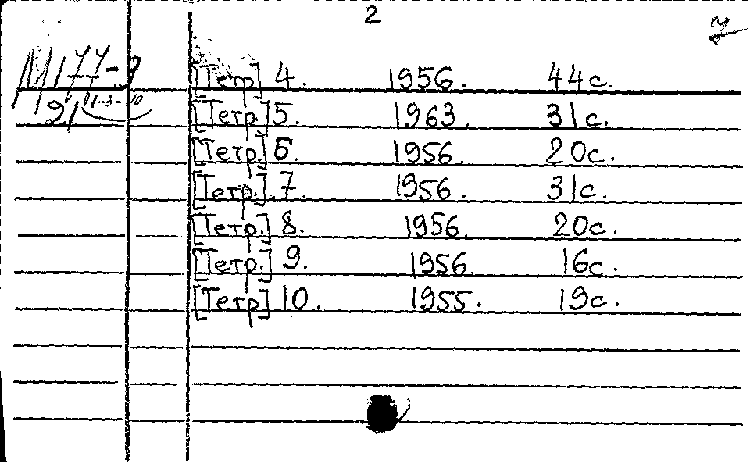 2
7
М177-9
[Тетр] 4. 1956. 44с.
21
[Тетр.] 5. 1963. 31с.
[Тетр.] 6. 1956. 20с.
[Тетр.] 7. 1956. 31с.
[Тетр.] 8. 1956. 20с.
[Тетр.] 9. 1956 16с.
[Тетр] 10. 1955. 19с.